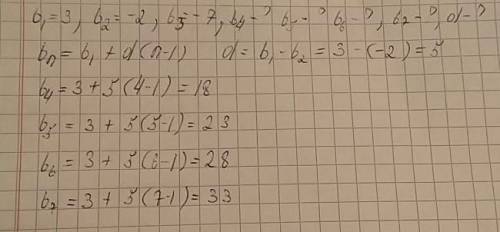 b₁=3, b₂=-2, b₃=-7, b₄-? b₅-? b₆-?, b₇-?, d-?
bn = b₁ + d(n-1) d = b₁-b₂ = 3-(-2) = 5
b₄ = 3 + 5(4-1) = 18
b₅ = 3 + 5(5-1) = 23
b₆ = 3 + 5(6-1) = 28
b₇ = 3 + 5(7-1) = 33